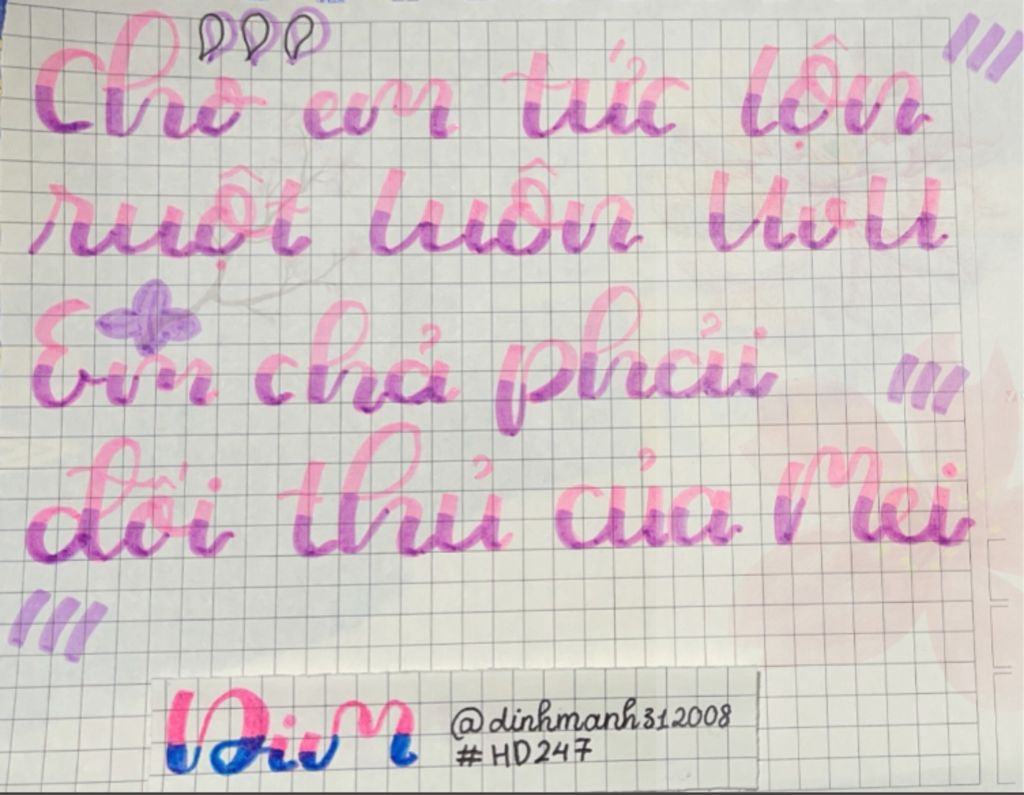 Cho em tức lộn
ruột luôn UvU
Em chả phải
đối thủ của Mei
@dinhmanh312008
#HD247